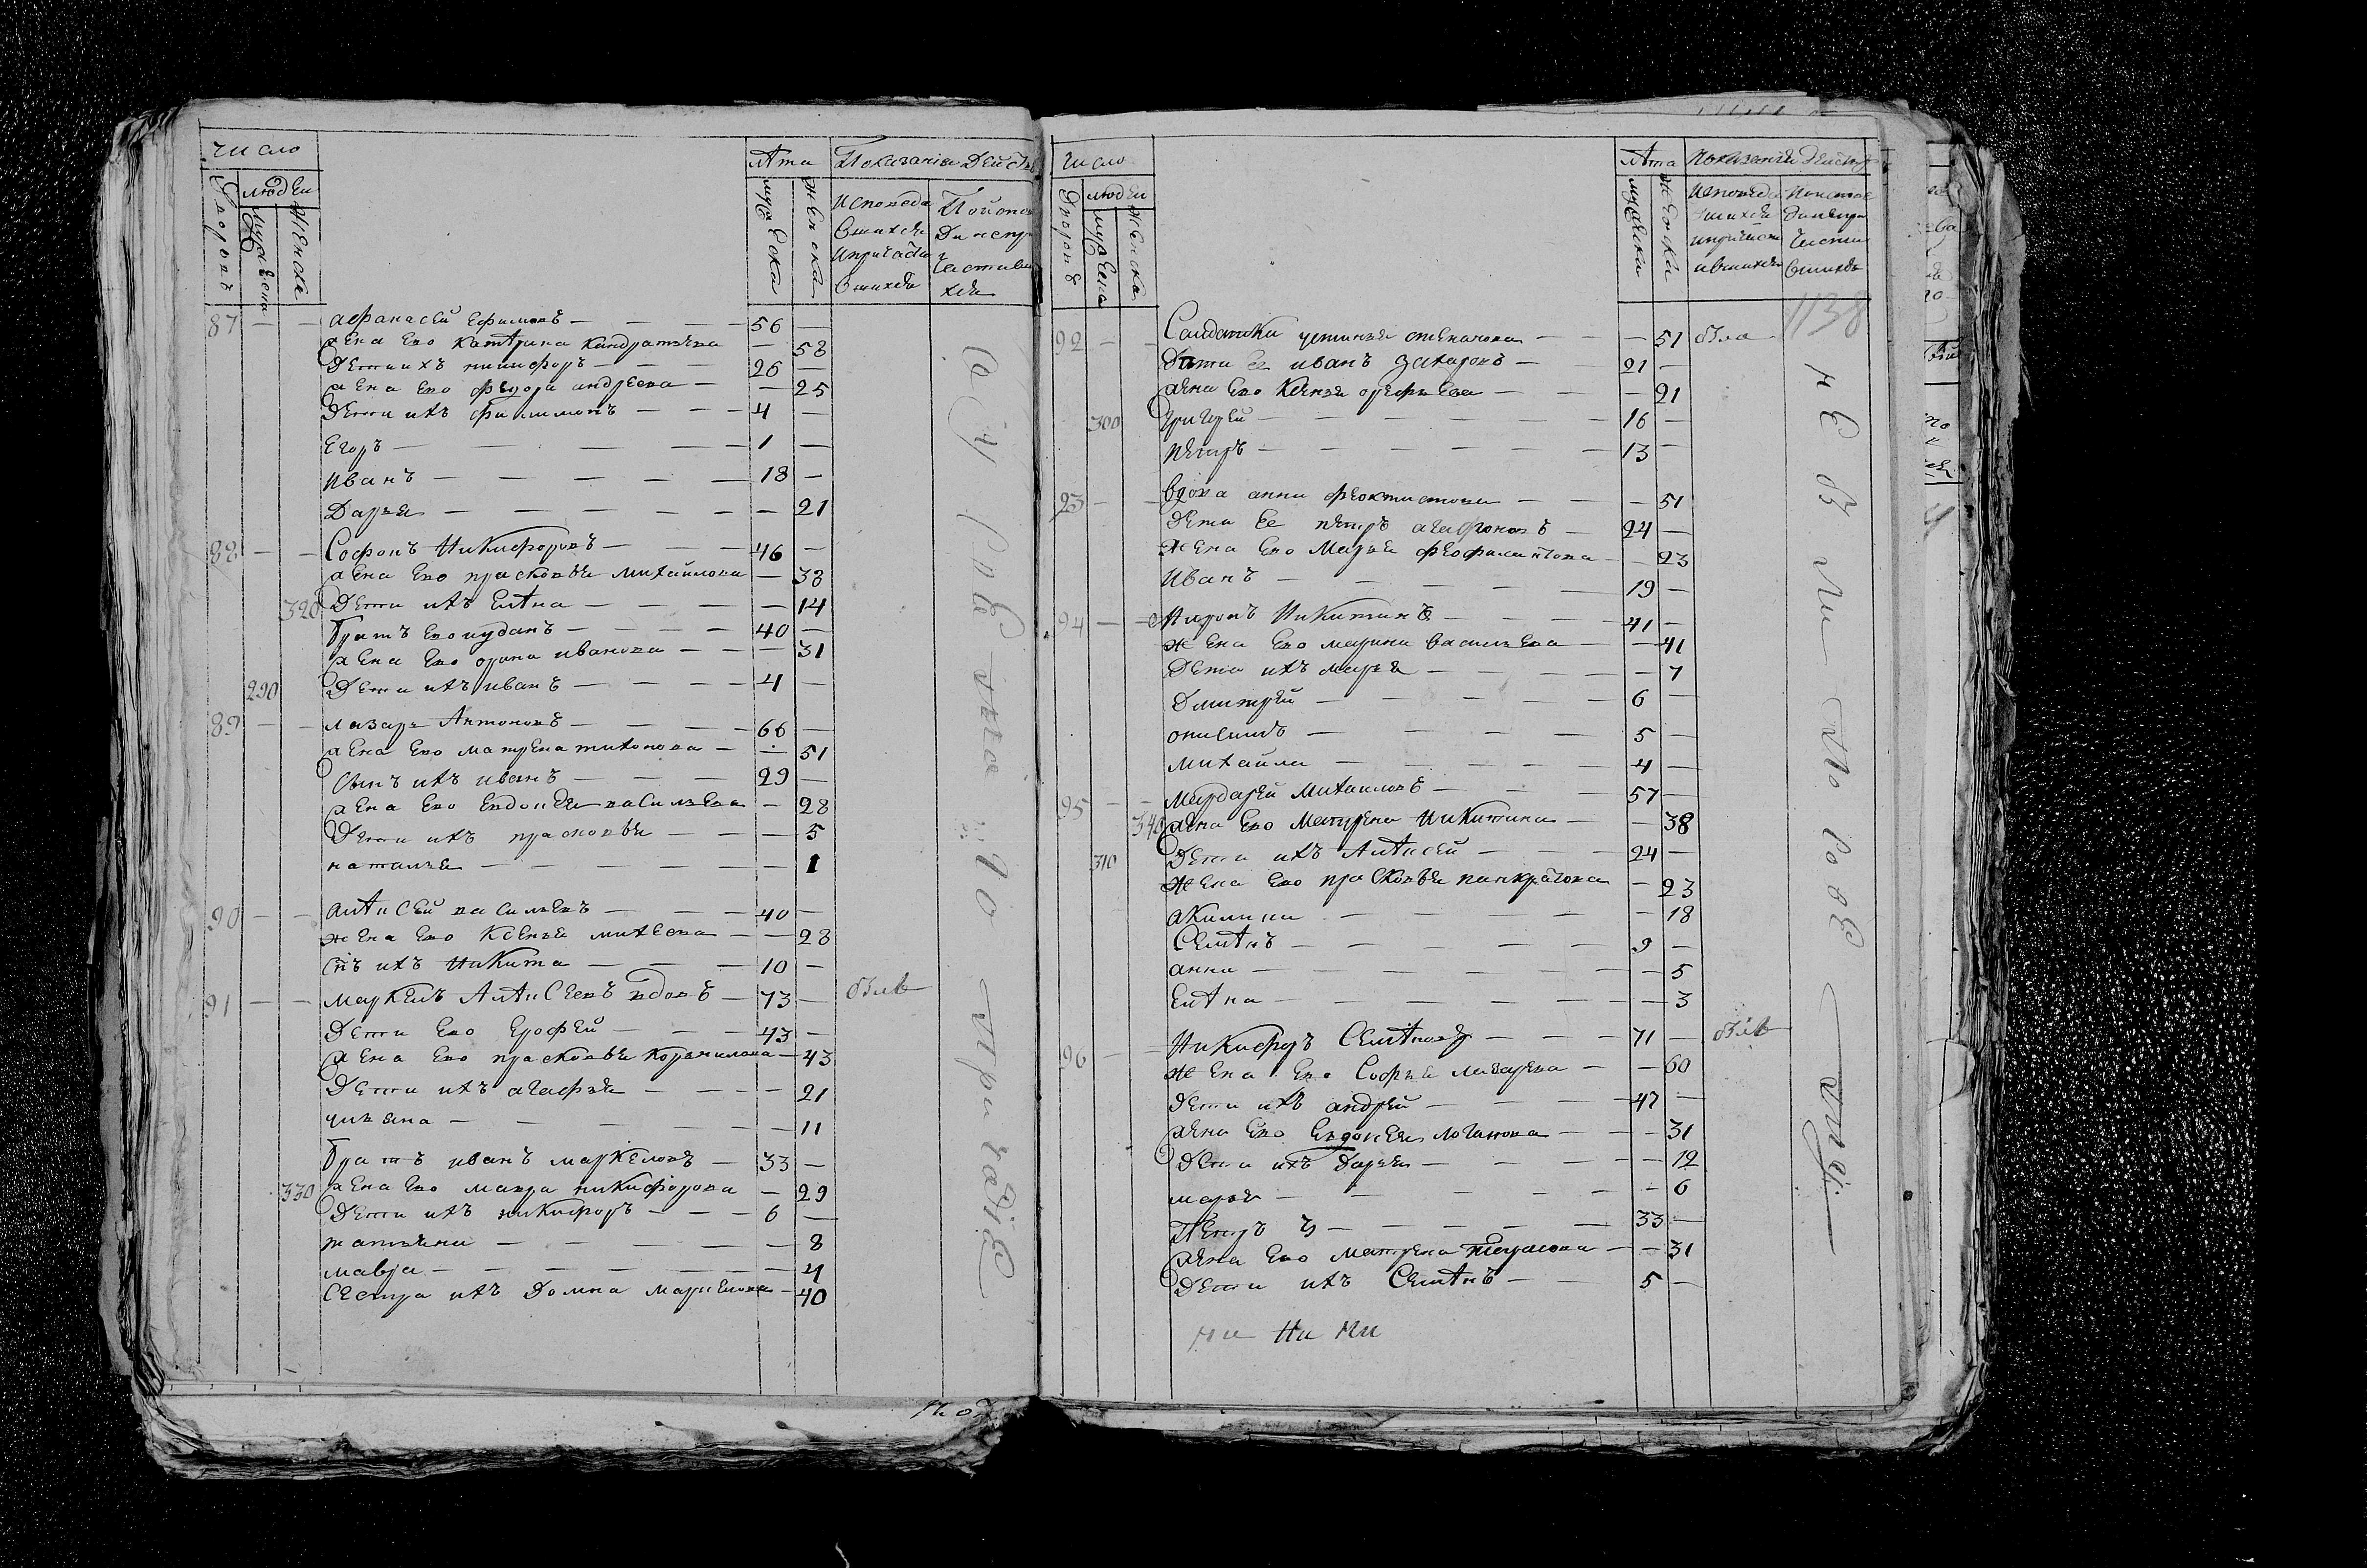 число
лѣта Показания Дейст
Дворовъ людеи мужеска женска
мужеска женска
Исповеда вшихся и причасти вшихся
87 — — афанасей Ефимовъ — 56 —
жена Ево катѣрина кандратьева — 58
Дети ихъ никифоръ — 26 —
жена Ево федора андреева — 25
Дети ихъ филимонъ — 4 —
Егоръ — 1 —
Иванъ — 18 —
Дарья — 21
88 — — Софонъ Никифоровъ — 46 —
жена Ево прасковья михаилова — 38
320 Дети ихъ Елѣна — 14
братъ Ево — 40 —
жена Ево орина иванова — 31
290 Дети ихъ иванъ — 4 —
89 — — лазарь Антоновъ — 66 —
жена Ево матрена тихонова — 51
сынъ ихъ иванъ — 29 —
жена Ево Евдокея васильева — 28
Дети ихъ прасковья — 5
наталья — 1
90 — — алѣксей васильевъ — 40 —
жена Ево Ксенья михеева — 28
снъ ихъ Никита — 10 —
91 — — маркелъ Алѣксеевъ вдовъ — 73 — былъ
Дети Ево Ерофей — 43 —
жена Ево прасковья корнилова — 43
Дети ихъ агафья — 21
ульяна — 11
братъ иванъ маркеловъ — 33 —
330 жена Ево мавра никифорова — 29
Дети ихъ никифоръ — 6 —
татьяна — 8
мавра — 4
сестра ихъ Домна маркелова — 40
число
лѣта показания действ
Дворовъ людеи мужеска женска
мужеска женска
1138
92 — — Салдатка устинья степанова — 51 была
Дѣти ее иванъ Захаровъ — 21 —
жена Ево Ксенья орефьева — 21
300 григорей — 16 —
петръ — 13 —
93 — — вдова анна феоктистова — 51
Дети Ее петръ агафоновъ — 24 —
жена Ево Марья феофилактова — 23
Иванъ — 19 —
94 — — Миронъ Никитинъ — 41 —
жена Ево марина васильева — 41
Дети ихъ марья — 7
Дмитрей — 6 —
онисимъ — 5 —
михайла — 4 —
95 — — мардарей михаиловъ — 57 —
340 жена Ево Матрена Никитина — 38
310 Дети ихъ Алѣксей — 24 —
жена Ево прасковья панкратова — 23
акилина — 18
Семѣнъ — 9 —
анна — 5
Елѣна — 3
96 — — Никифоръ Семѣновъ — 71 — былъ
жена Ево Софья лазарева — 60
Дети ихъ андрей — 47 —
жена Ево Евдокея логинова — 31
Дети ихъ Дарья — 12
марья — 6
Петръ — 33 —
жена Ево матрена тарасова — 31
Дети ихъ Семѣнъ — 5 —